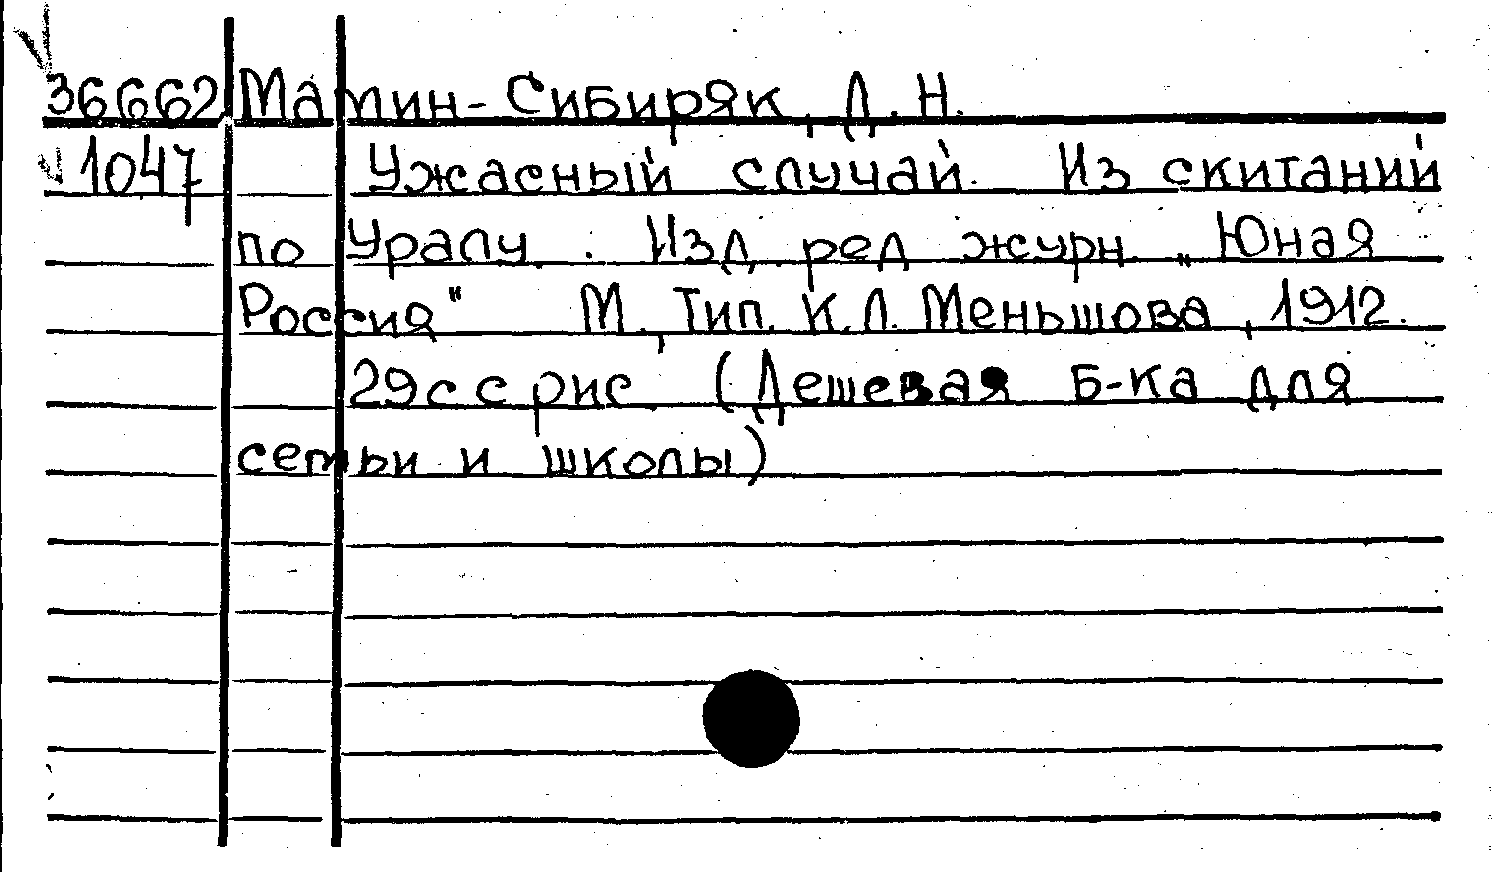 36662 Мамин-Сибиряк, Д. Н.
1047 Ужасный случай. Из скитаний
по Уралу. Изд. ред. журн. „Юная
Россия" М., Тип. К.Л. Меньшова, 1912.
29с с рис (Дешевая Б-ка для
семьи и школы)